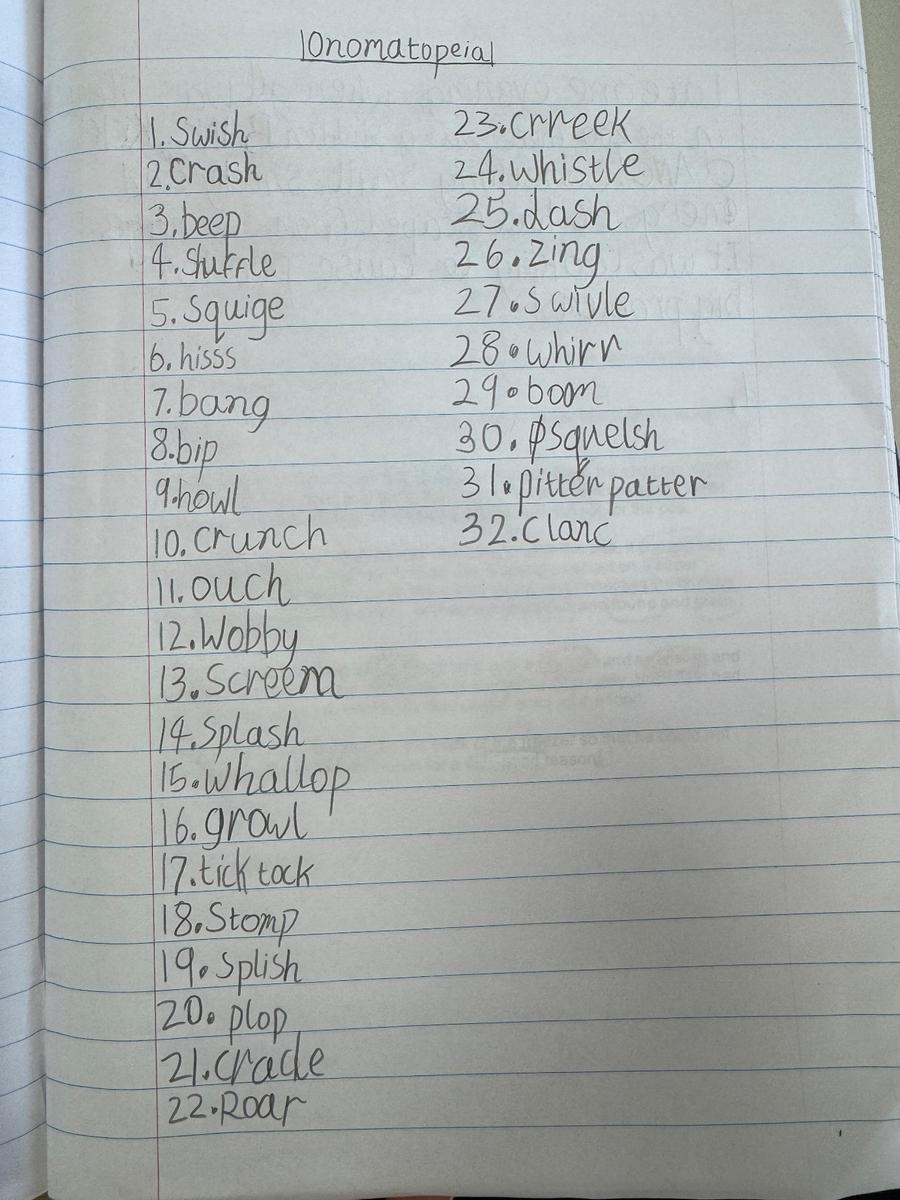 Onomatopeia
1. Swish
2. Crash
3. beep
4. Shuffle
5. Squige
6. hisss
7. bang
8. bip
9. howl
10. Crunch
11. ouch
12. Wobby
13. Screem
14. Splash
15. whallop
16. growl
17. tick tock
18. Stomp
19. Splish
20. plop
21. Cracle
22. Roar
23. crreek
24. whistle
25. dash
26. Zing
27. Swivle
28. whirr
29. boom
30. squelsh
31. pitter patter
32. Clanc